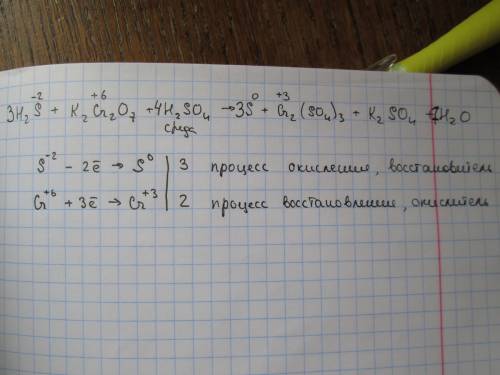 3H₂S⁻² + K₂Cr₂⁺⁶O₇ + 4H₂SO₄ → 3S⁰ + Cr₂⁺³(SO₄)₃ + K₂SO₄ + 7H₂O
среда
S⁻² - 2ē → S⁰ | 3 процесс окисление, восстановитель
Cr⁺⁶ + 3ē → Cr⁺³ | 2 процесс восстановление, окислитель